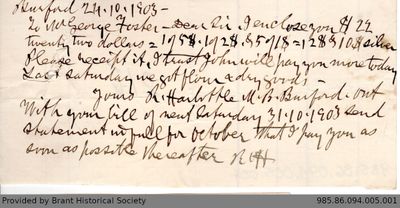 Burford 24.10.1903-
To Mr George Foster - Dear Sir I enclose you $22
twenty two dollars = 1 silver
Please receipt it, I trust John will pay you more today
Last Saturday we got flour & dry goods -
Yours R. Harbottle M. B. Burford Ont
With your bill of next Saturday 31.10.1903 send
statement in full for October that I pay you as
soon as possible thereafter RH
985.86.094.005.001
Provided by Brant Historical Society
985.86.094.005.001